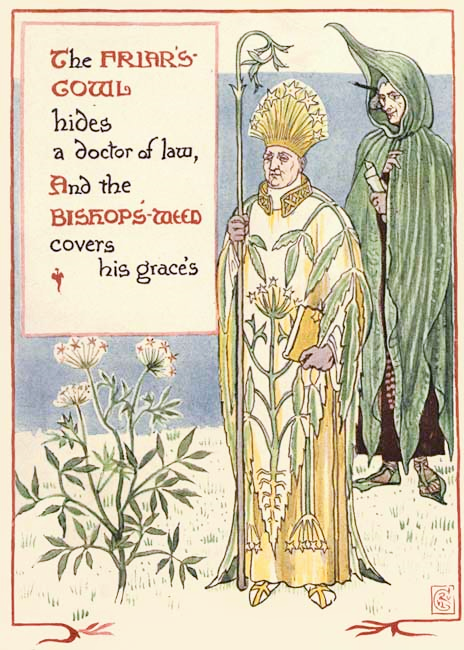 The FRIAR'S-
COWL
hides
a doctor of law,
And the
BISHOPS'-WEED
covers
his grace's